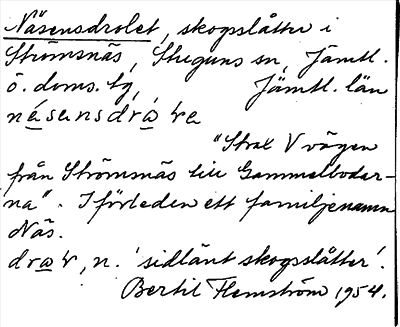 Näsensdrolet, skogslåtter i
Strömsnäs, Stuguns sn, Jämtl.
ö. doms. tg, Jämtl. län
"Strax V vägen
från Strömsnäs till Gammelbodar-
na". I förleden ett familjenamn
Näs.
n. 'sidlänt skogsslåtter'.
Bertil Flemström 1954.